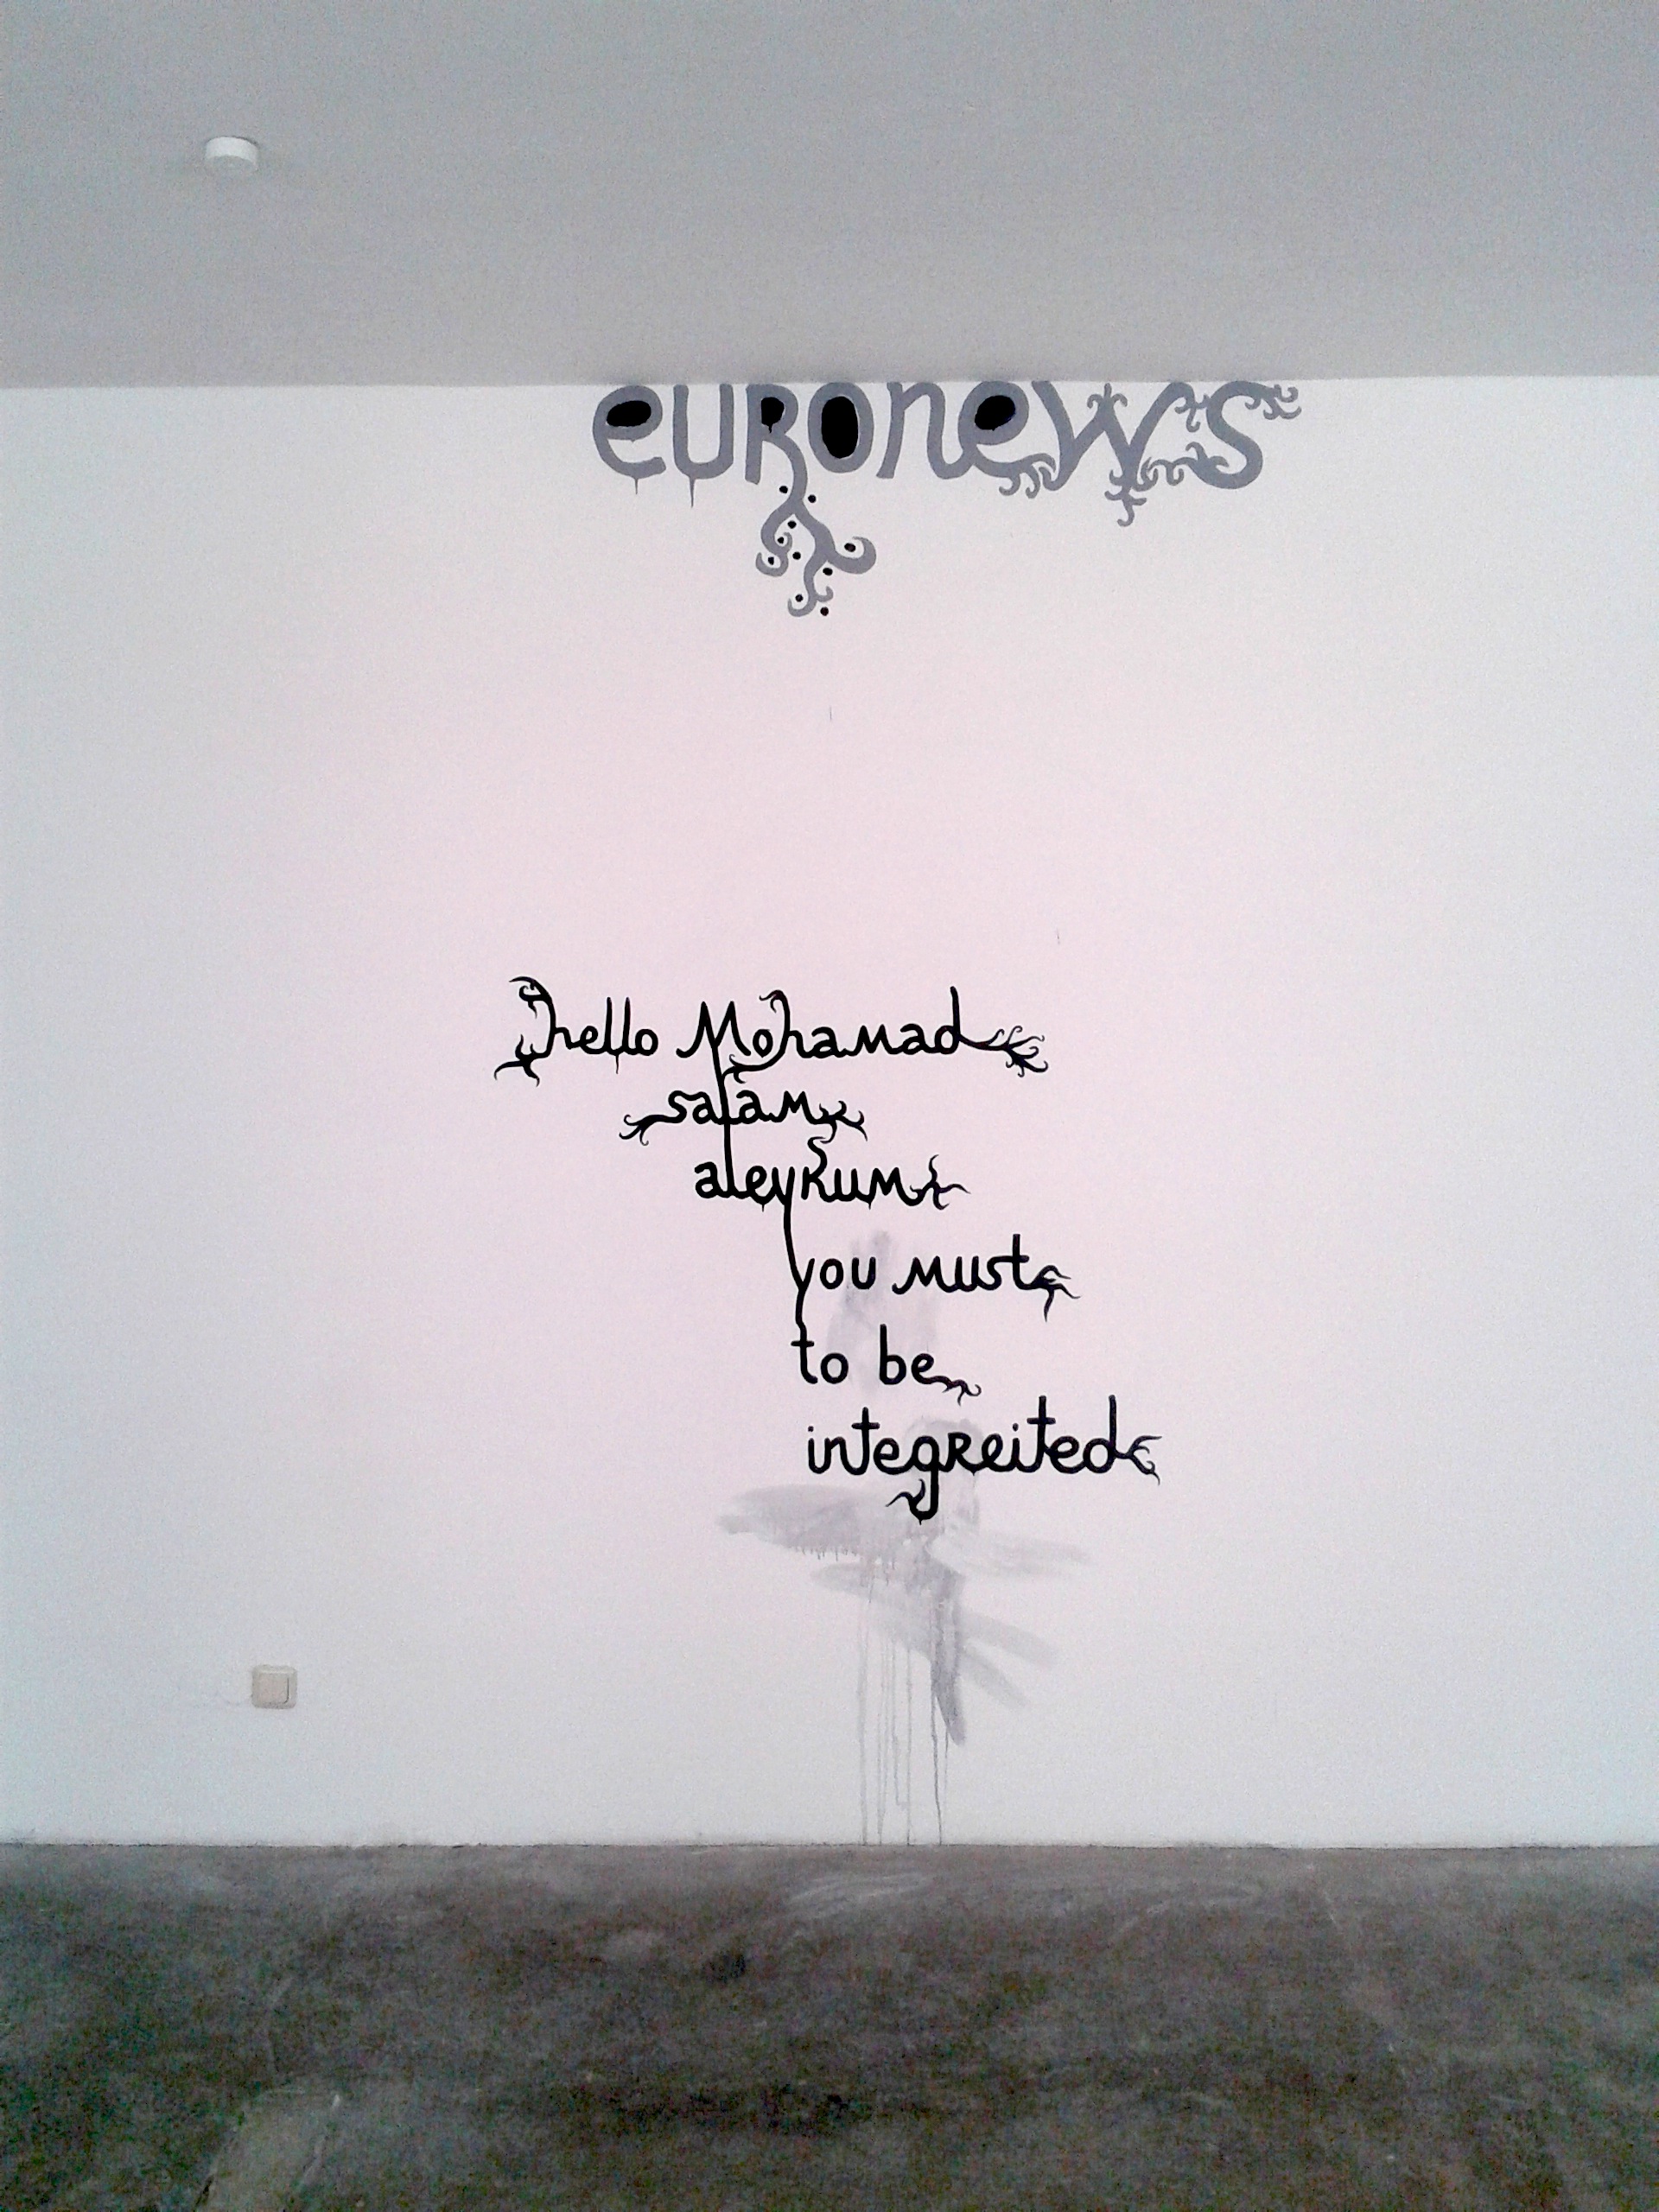 euRonews
hello Mohamad
salam
aleykum
you must
to be
integreited